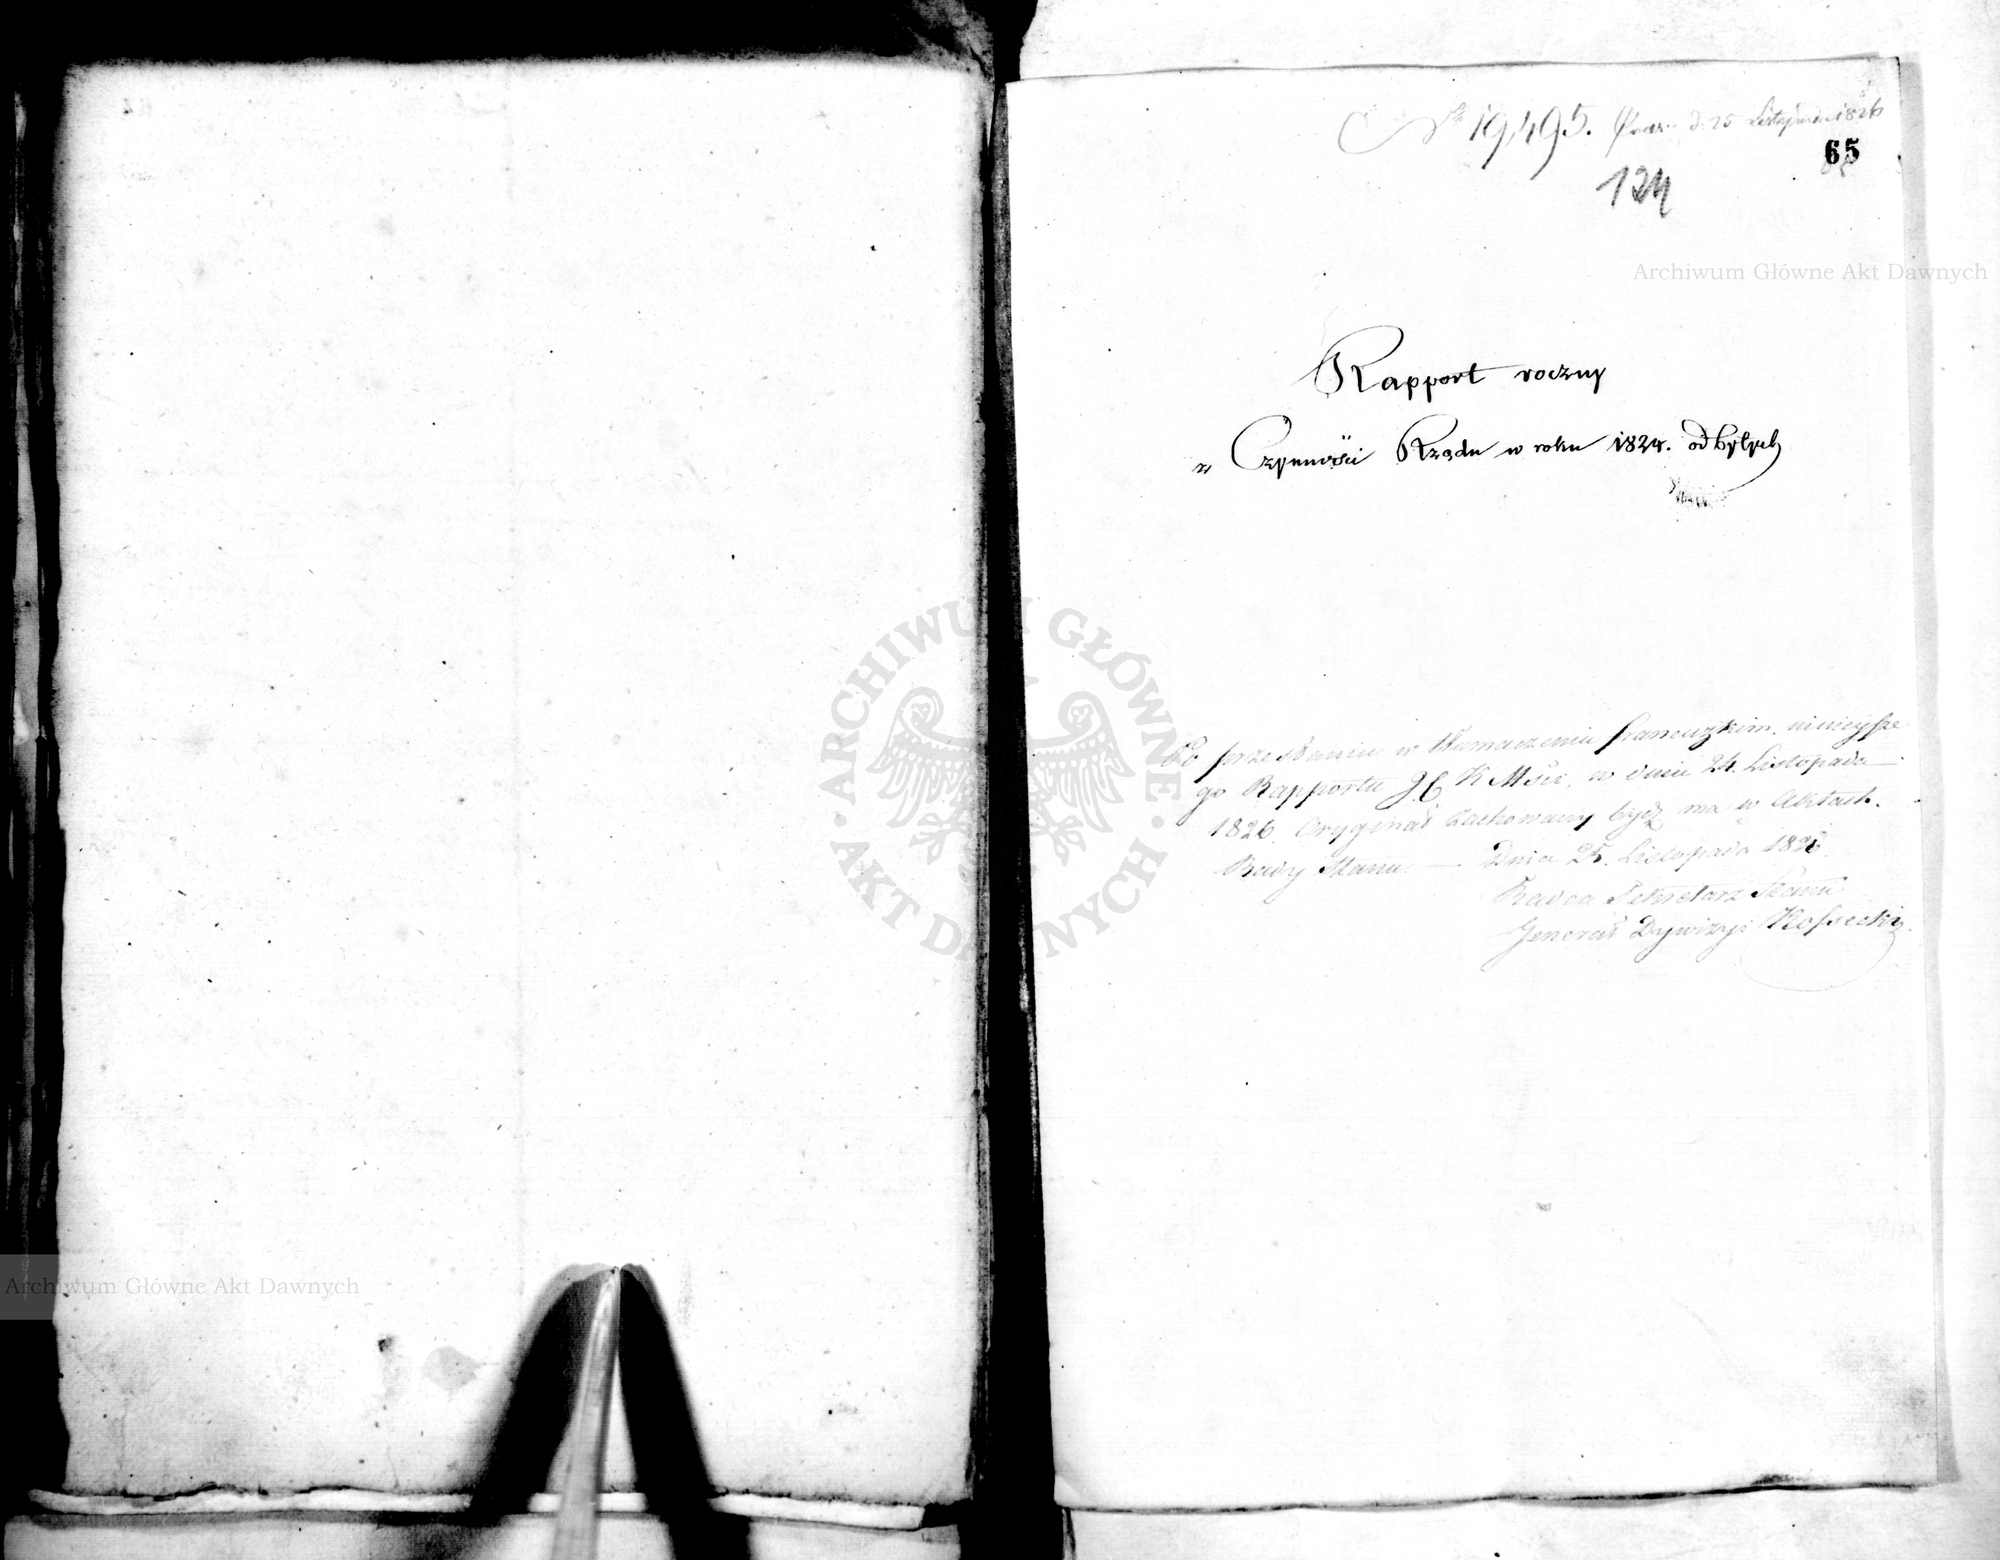 No 19,495. d. 25 Listopada 1826
65
124
Archiwum Główne Akt Dawnych
Rapport roczny
z Czynności Rządu w roku 1824. odbytych
Po przesłaniu w tłumaczeniu francuzkim, ninieysze
go Rapportu J C K Mści, w dniu 24. Listopada
1826 Oryginał zachowany bydź ma w Aktach
Rady Stanu. — Dnia 25. Listopada 1826
Radca Sekretarz Stanu
Generał Dywizyi Kossecki
ARCHIWUM GŁÓWNE
AKT DAWNYCH
Archiwum Główne Akt Dawnych